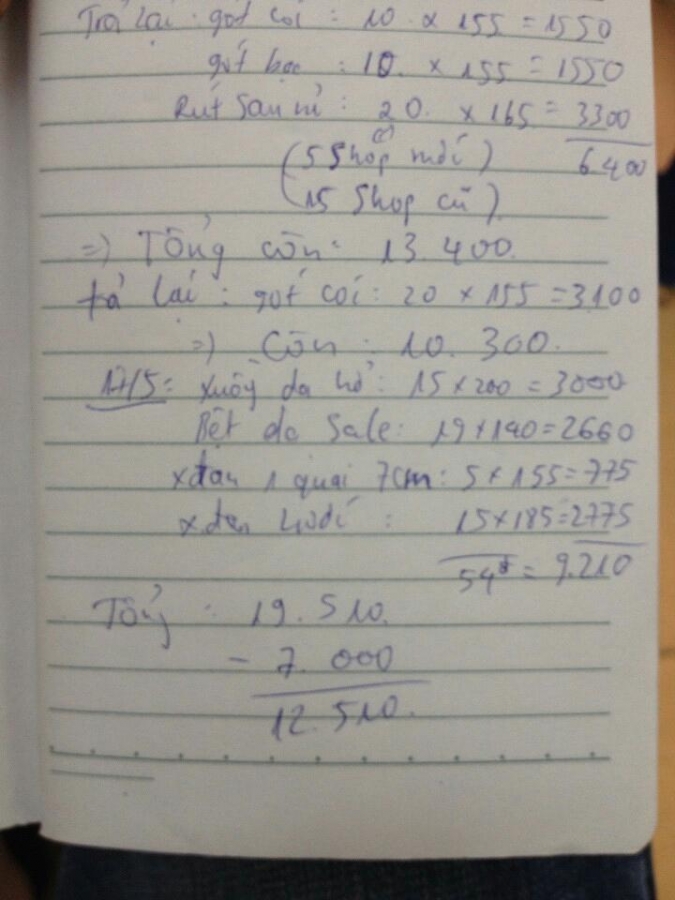 Trả lại: gót coi: 10 x 155 = 1550
gót bọc: 10. x 155 = 1550
Rút sau nỉ: 20. x 165 = 3300
(5 Shop mới) 6.400
(15 Shop cũ)
=) Tổng còn: 13.400.
trả lại: gót coí: 20 x 155 = 3100
=) Còn: 10.300.
17/5: Xuồng da hở: 15 x 200 = 3000
Bệt da Sale: 19 x 140 = 2660
xđan 1 quai 7cm: 5 x 155 = 775
x.đan : 15 x 185 = 2775
54đ = 9.210
Tổng: 19.510.
- 7.000
12.510.